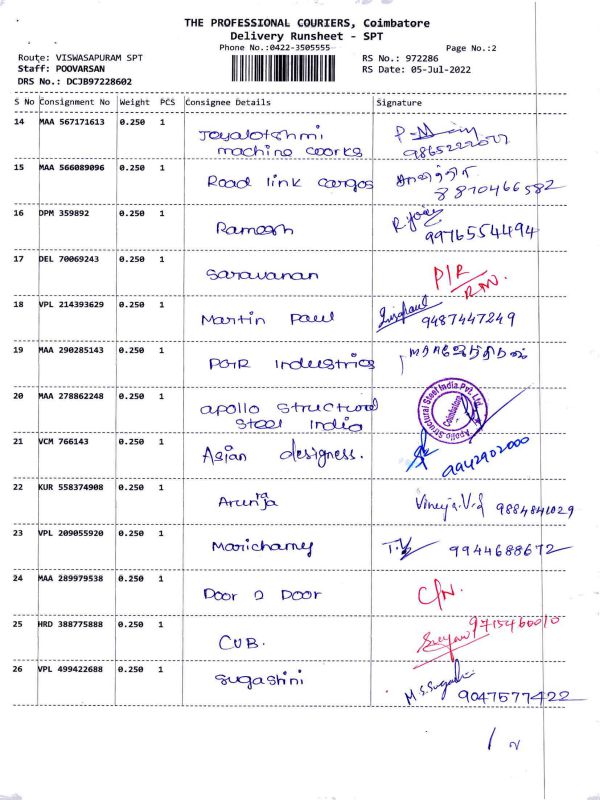 THE PROFESSIONAL COURIERS, Coimbatore
Delivery Runsheet - SPT
Phone No.:0422-3505555
Page No.:2
Route: VISWASAPURAM SPT
RS No.: 972286
Staff: POOVARSAN
RS Date: 05-Jul-2022
DRS No.: DCJB97228602
S No Consignment No Weight PCS Consignee Details Signature
14 MAA 567171613 0.250 1
machine works
15 MAA 566089096 0.250 1 Road link cargos
8870466582
16 DPM 359892 0.250 1 Ramesh
9976554494
17 DEL 70069243 0.250 1 Saravanan P/R
R.N.
18 VPL 214393629 0.250 1 Martin paul
9487447249
19 MAA 290285143 0.250 1 Industries
20 MAA 278862248 0.250 1 apollo structural
Steel India
Apollo Structural Steel India Pvt. Ltd.
Coimbatore
21 VCM 766143 0.250 1 Asian designess.
9942902000
22 KUR 558374908 0.250 1 Arunja
9884841029
23 VPL 209055920 0.250 1 Marichamy
9944688672
24 MAA 289979538 0.250 1 Door 2 Door C/N.
25 HRD 388775888 0.250 1 CUB.
9715460010
26 VPL 499422688 0.250 1 Sugashini
9047577422